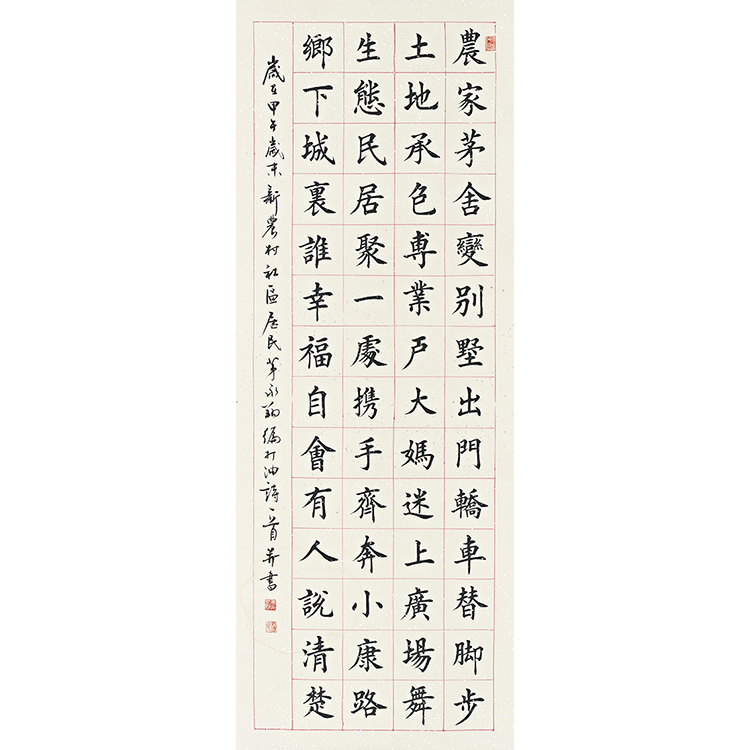 農家茅舍變別墅出門轎車替脚步
土地承包專業戶大媽迷上廣場舞
生態民居聚一處携手齊奔小康路
鄉下城裏誰幸福自會有人説清楚
歲在甲午歲末新農村社區居民 永翔編打油詩一首并書